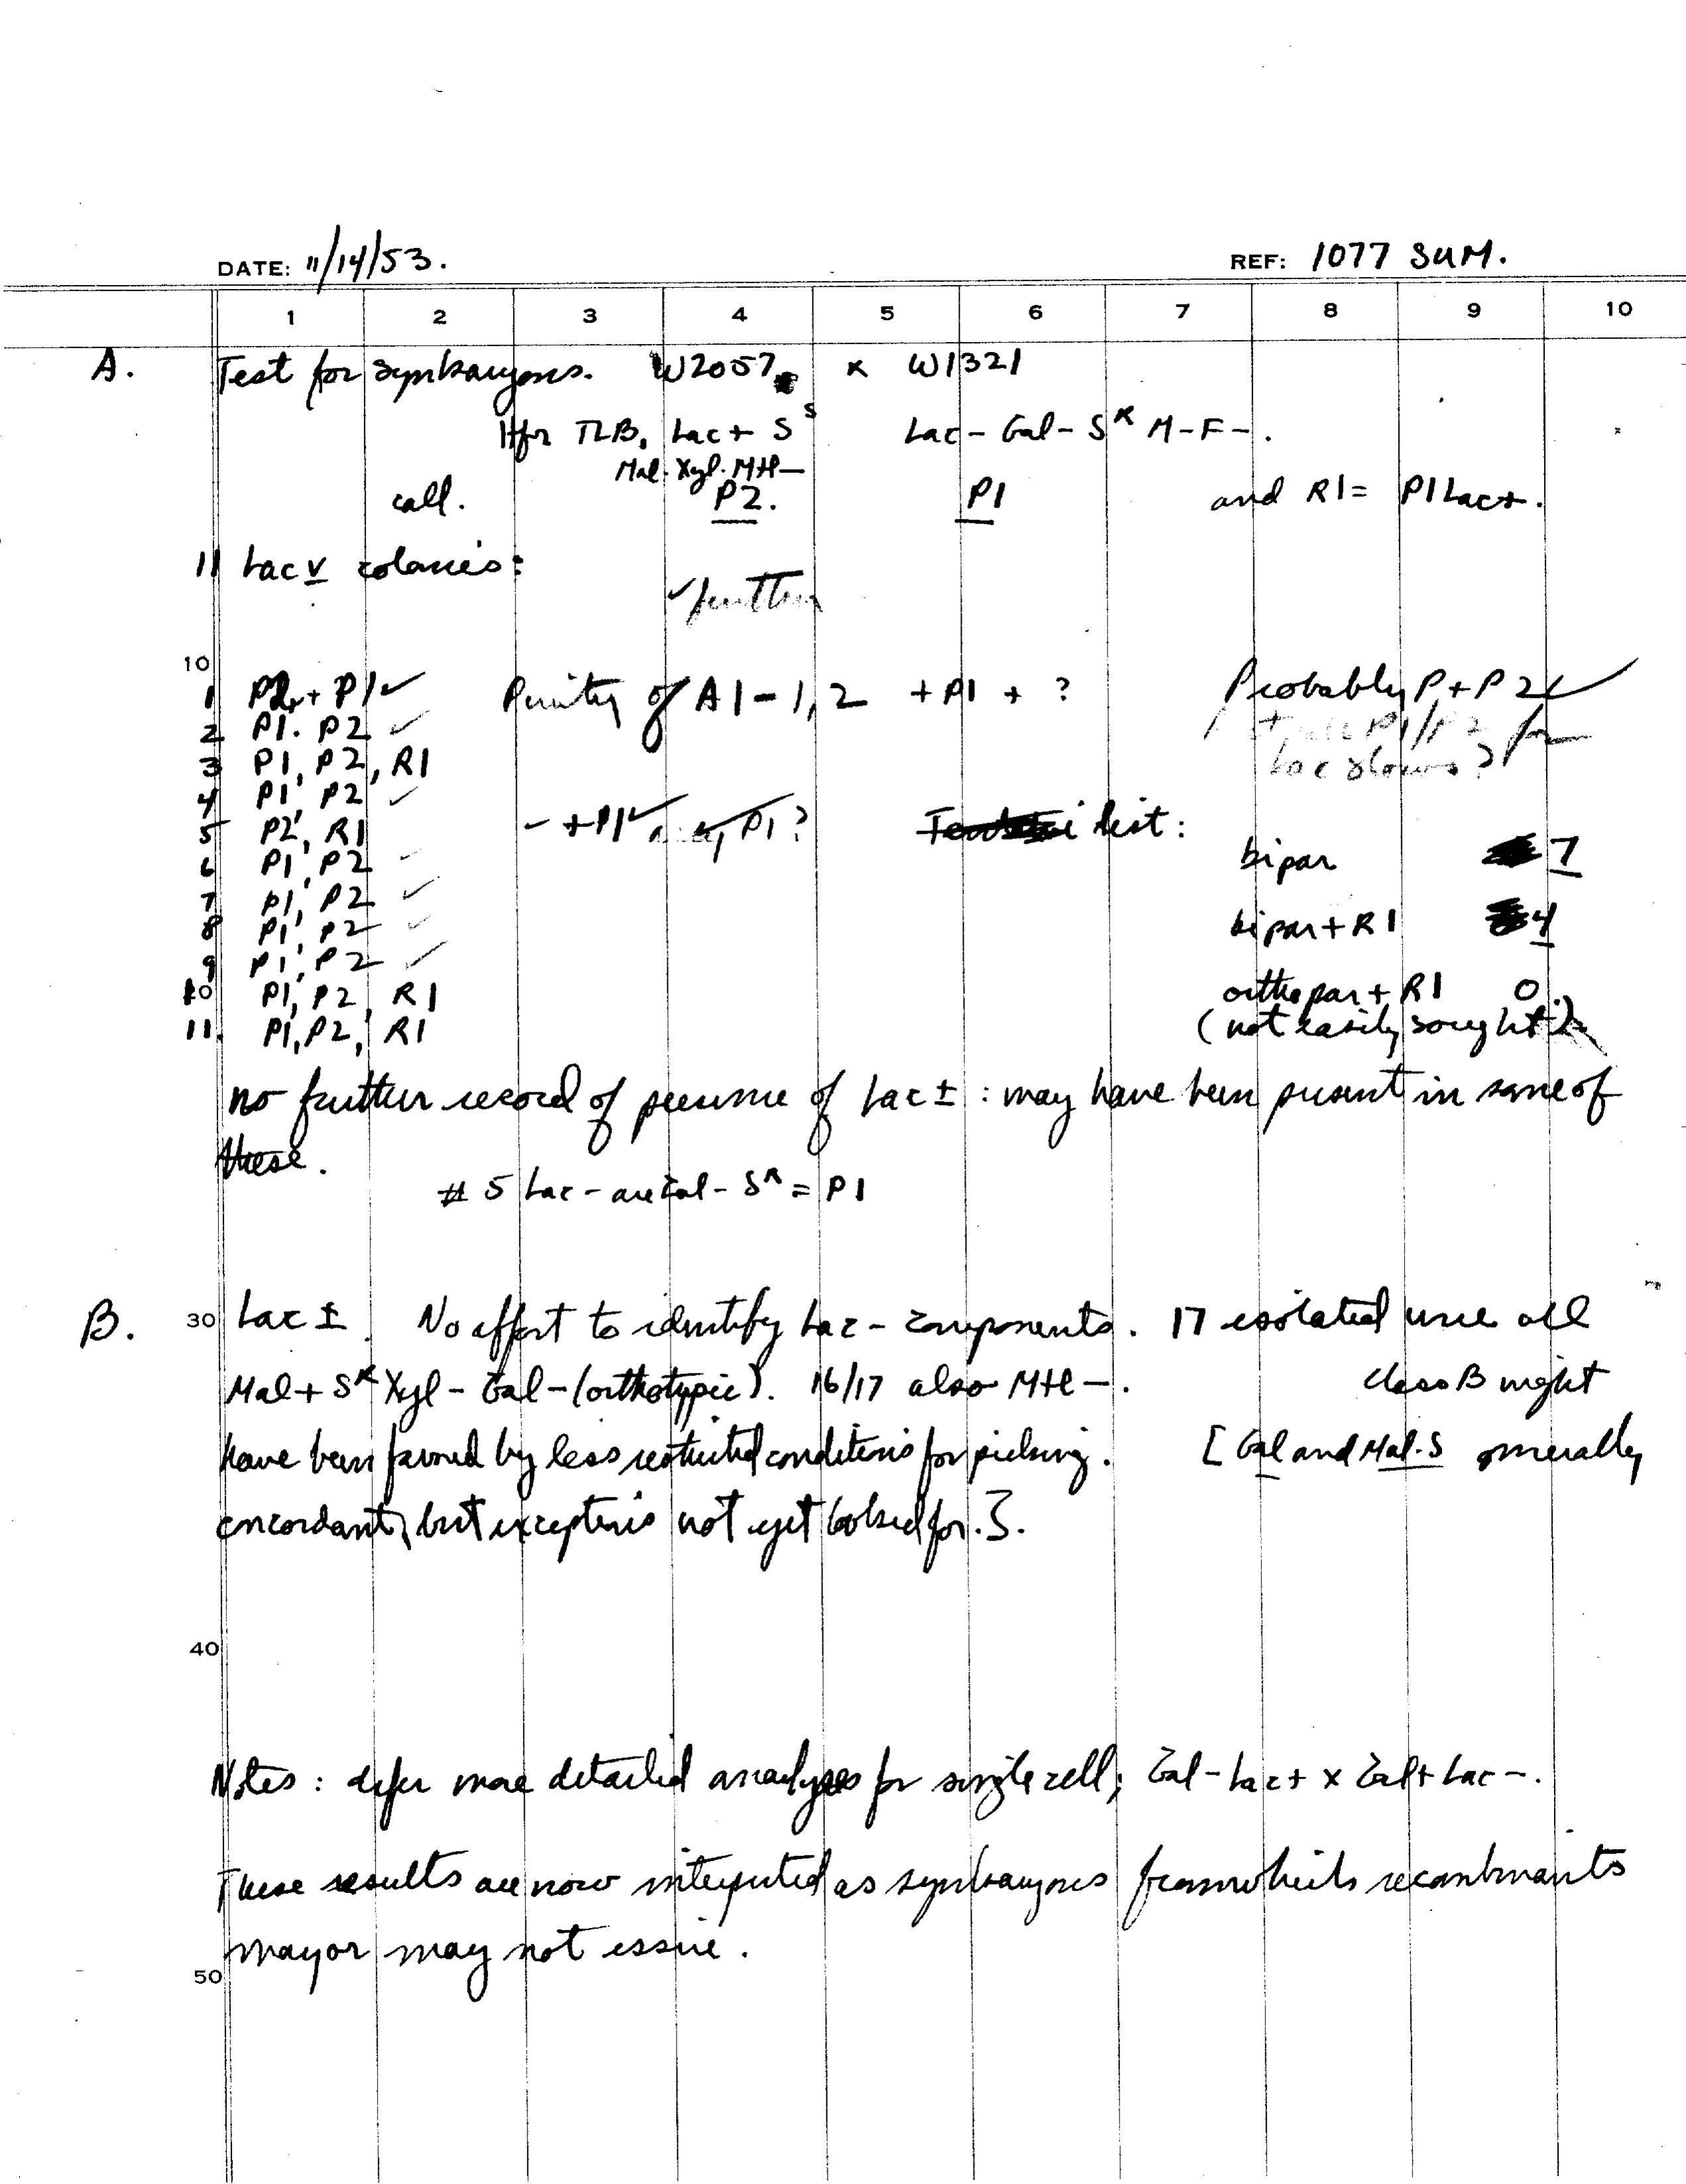 DATE: 11/14/53.
REF: 1077 SUM.
1 2 3 4 5 6 7 8 9 10
A. Test for synkaryons. W2057 x W1321
Hfr TLB, Lac+ S^S Lac- Gal- S^R M-F-.
Mal- Xyl- Mtl-
call. P2. P1 and R1 = P1 Lac+.
11 Lac v colonies:
✓ further
10
1 P2 + P1 ✓ Purity of A1-1,2 + P1 + ? Probably P + P2 ✓
2 P1. P2 ✓ P1/P2 for
3 P1, P2, R1 Lac slows?
4 P1, P2 ✓
5 P2, R1 - + P1 ✓ P1? list:
6 P1, P2 ✓ bipar 7
7 P1, P2 ✓
8 P1, P2 ✓ bipar + R1 4
9 P1, P2 ✓
10 P1, P2, R1 orthopar + R1 0.
11. P1, P2, R1 (not easily sought)
no further record of presence of Lac ± : may have been present in some of
these.
# 5 Lac- are Gal- S^R = P1
B. 30 Lac ±. No effort to identify Lac- components. 17 isolated were all
Mal+ S^R Xyl- Gal- (orthotypic). 16/17 also Mtl-. Class B might
have been favored by less restricted conditions for picking. [Gal and Mal-S generally
concordant, but exceptions not yet looked for.].
40
Notes: defer more detailed analyses for single cell; Gal- Lac+ x Gal+ Lac-.
These results are now interpreted as synkaryons from which recombinants
may or may not issue.
50